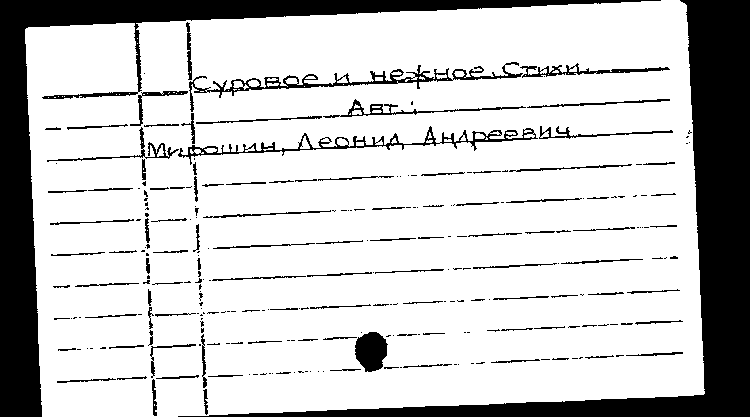 Суровое и нежное. Стихи.
Авт.:
Мирошин, Леонид Андреевич